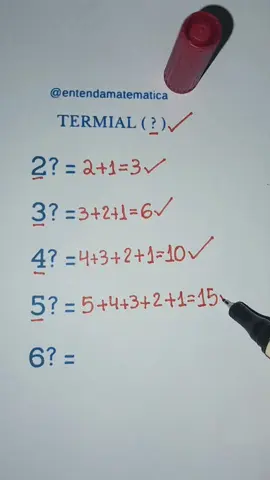 @entendamatematica
TERMIAL (?)
2? = 2+1=3
3? = 3+2+1=6
4? = 4+3+2+1=10
5? = 5+4+3+2+1=15
6? =